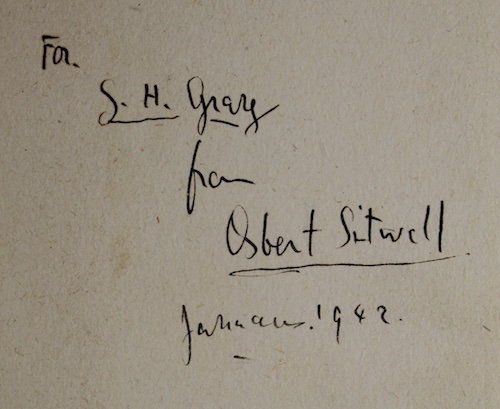 For.
S. H. Gray
from
Osbert Sitwell
January. 1942.